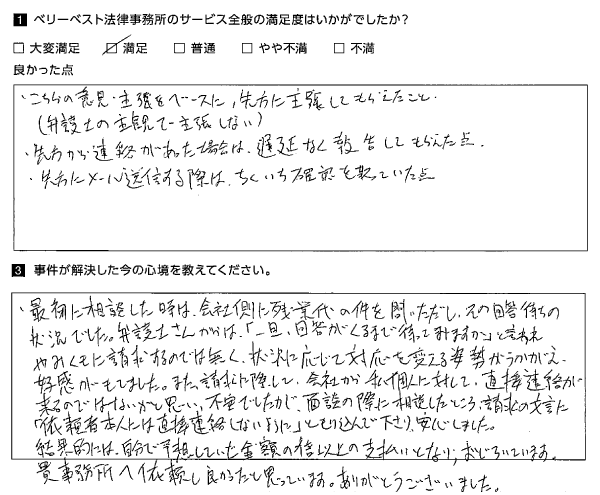 1 ベリーベスト法律事務所のサービス全般の満足度はいかがでしたか?
□ 大変満足 ☑ 満足 □ 普通 □ やや不満 □ 不満
良かった点
・こちらの意見・主張をベースに,先方に主張してもらえたこと.
(弁護士の主観で主張しない)
・先方から連絡があった場合は、遅延なく報告してもらえた点.
・先方にメール送信する際は、ちくいち確認を取っていた点
3 事件が解決した今の心境を教えてください。
・最初に相談した時は、会社側に残業代の件を問いただし、その回答待ちの
状況でした。弁護士さんからは、「一旦、回答がくるまで待ってみますか」と言われ
やみくもに請求するのでは無く、状況に応じて対応を変える姿勢がうかがえ、
好感がもてました。また、請求に際して、会社から私個人に対して、直接連絡が
来るのではないかと思い、不安でしたが、面談の際に相談したところ、請求の文言に
「依頼者本人には直接連絡しないように」ともり込んで下さり、安心しました。
結果的には、自分で予想していた金額の倍以上の支払いとなり、おどろいています。
貴事務所へ依頼し良かったと思っています。ありがとうございました。